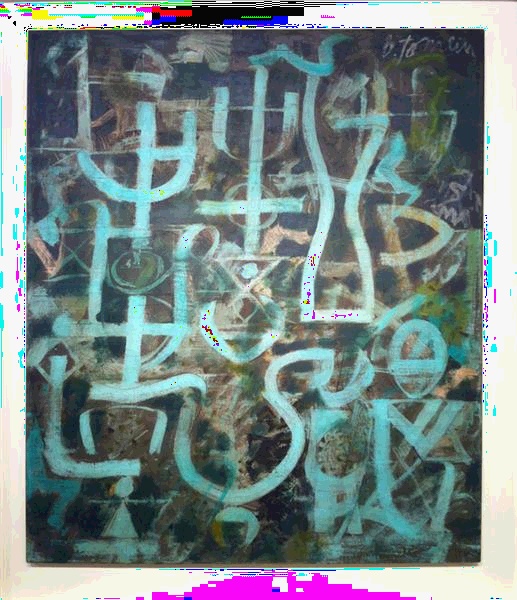 B. Tomlin